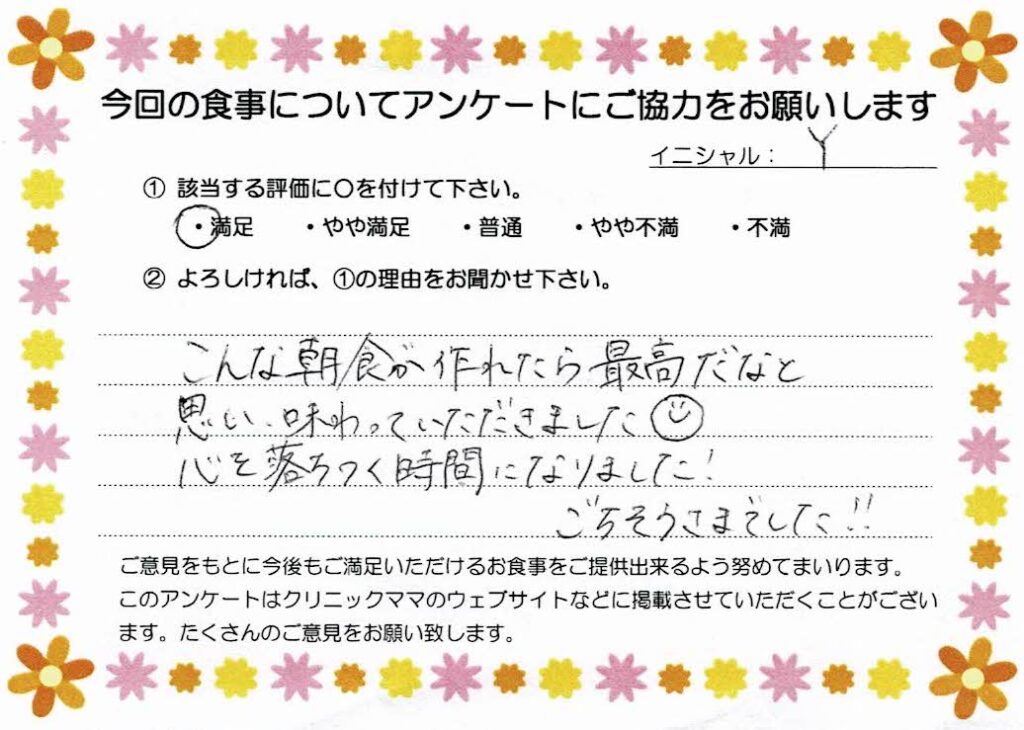 今回の食事についてアンケートにご協力をお願いします
イニシャル： Y
① 該当する評価に〇を付けて下さい。
・満足 ・やや満足 ・普通 ・やや不満 ・不満
② よろしければ、①の理由をお聞かせ下さい。
こんな朝食が作れたら最高だなと
思い、味わっていただきました☺
心を落ちつく時間になりました！
ごちそうさまでした!!
ご意見をもとに今後もご満足いただけるお食事をご提供出来るよう努めてまいります。
このアンケートはクリニックママのウェブサイトなどに掲載させていただくことがござい
ます。たくさんのご意見をお願い致します。